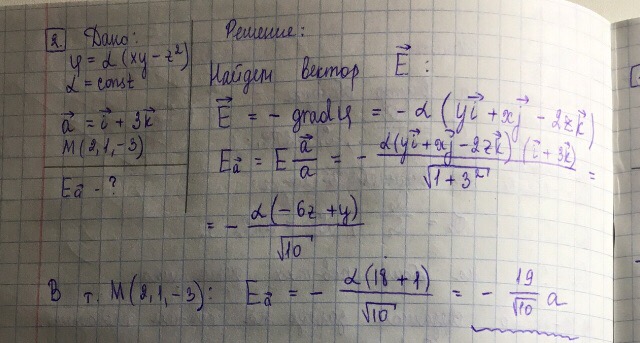 2. Дано:
φ = α(xy − z²)
α = const
a⃗ = i⃗ + 3k⃗
M(2, 1, −3)
Ea⃗ - ?
Решение:
Найдем вектор E⃗ :
E⃗ = − gradφ = − α (yi⃗ + xj⃗ − 2zk⃗)
Ea⃗ = E a⃗/a = − α(yi⃗ + xj⃗ − 2zk⃗) (i⃗ + 3k⃗) / √(1 + 3²) =
= − α(−6z + y) / √10
В т. M(2, 1, −3): Ea⃗ = − α(18 + 1) / √10 = − 19/√10 α